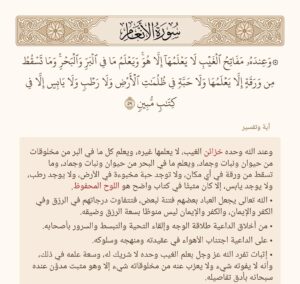 سُورَةُ الأَنْعَامِ
۞ وَعِندَهُۥ مَفَاتِحُ ٱلْغَيْبِ لَا يَعْلَمُهَآ إِلَّا هُوَ ۚ وَيَعْلَمُ مَا فِى ٱلْبَرِّ وَٱلْبَحْرِ ۚ وَمَا تَسْقُطُ
مِن وَرَقَةٍ إِلَّا يَعْلَمُهَا وَلَا حَبَّةٍ فِى ظُلُمَٰتِ ٱلْأَرْضِ وَلَا رَطْبٍ وَلَا يَابِسٍ إِلَّا فِى
كِتَٰبٍ مُّبِينٍ ٥٩
آية وتفسير
وعند الله وحده خزائن الغيب، لا يعلمها غيره، ويعلم كل ما في البر من مخلوقات
من حيوان ونبات وجماد، ويعلم ما في البحر من حيوان ونبات وجماد، وما
تسقط من ورقة في أي مكان، ولا توجد حبة مخبوءة في الأرض، ولا يوجد رطب،
ولا يوجد يابس، إلا كان مثبتًا في كتاب واضح هو اللوح المحفوظ.
• الله تعالى يجعل العباد بعضهم فتنة لبعض، فتتفاوت درجاتهم في الرزق وفي
الكفر والإيمان، والكفر والإيمان ليس منوطًا بسعة الرزق وضيقه.
• من أخلاق الداعية طلاقة الوجه وإلقاء التحية والتبسط والسرور بأصحابه.
• على الداعية اجتناب الأهواء في عقيدته ومنهجه وسلوكه.
• إثبات تفرد الله عز وجل بعلم الغيب وحده لا شريك له، وسعة علمه في ذلك،
وأنه لا يفوته شيء ولا يعزب عنه من مخلوقاته شيء إلا وهو مثبت مدوَّن عنده
سبحانه بأدق تفاصيله.